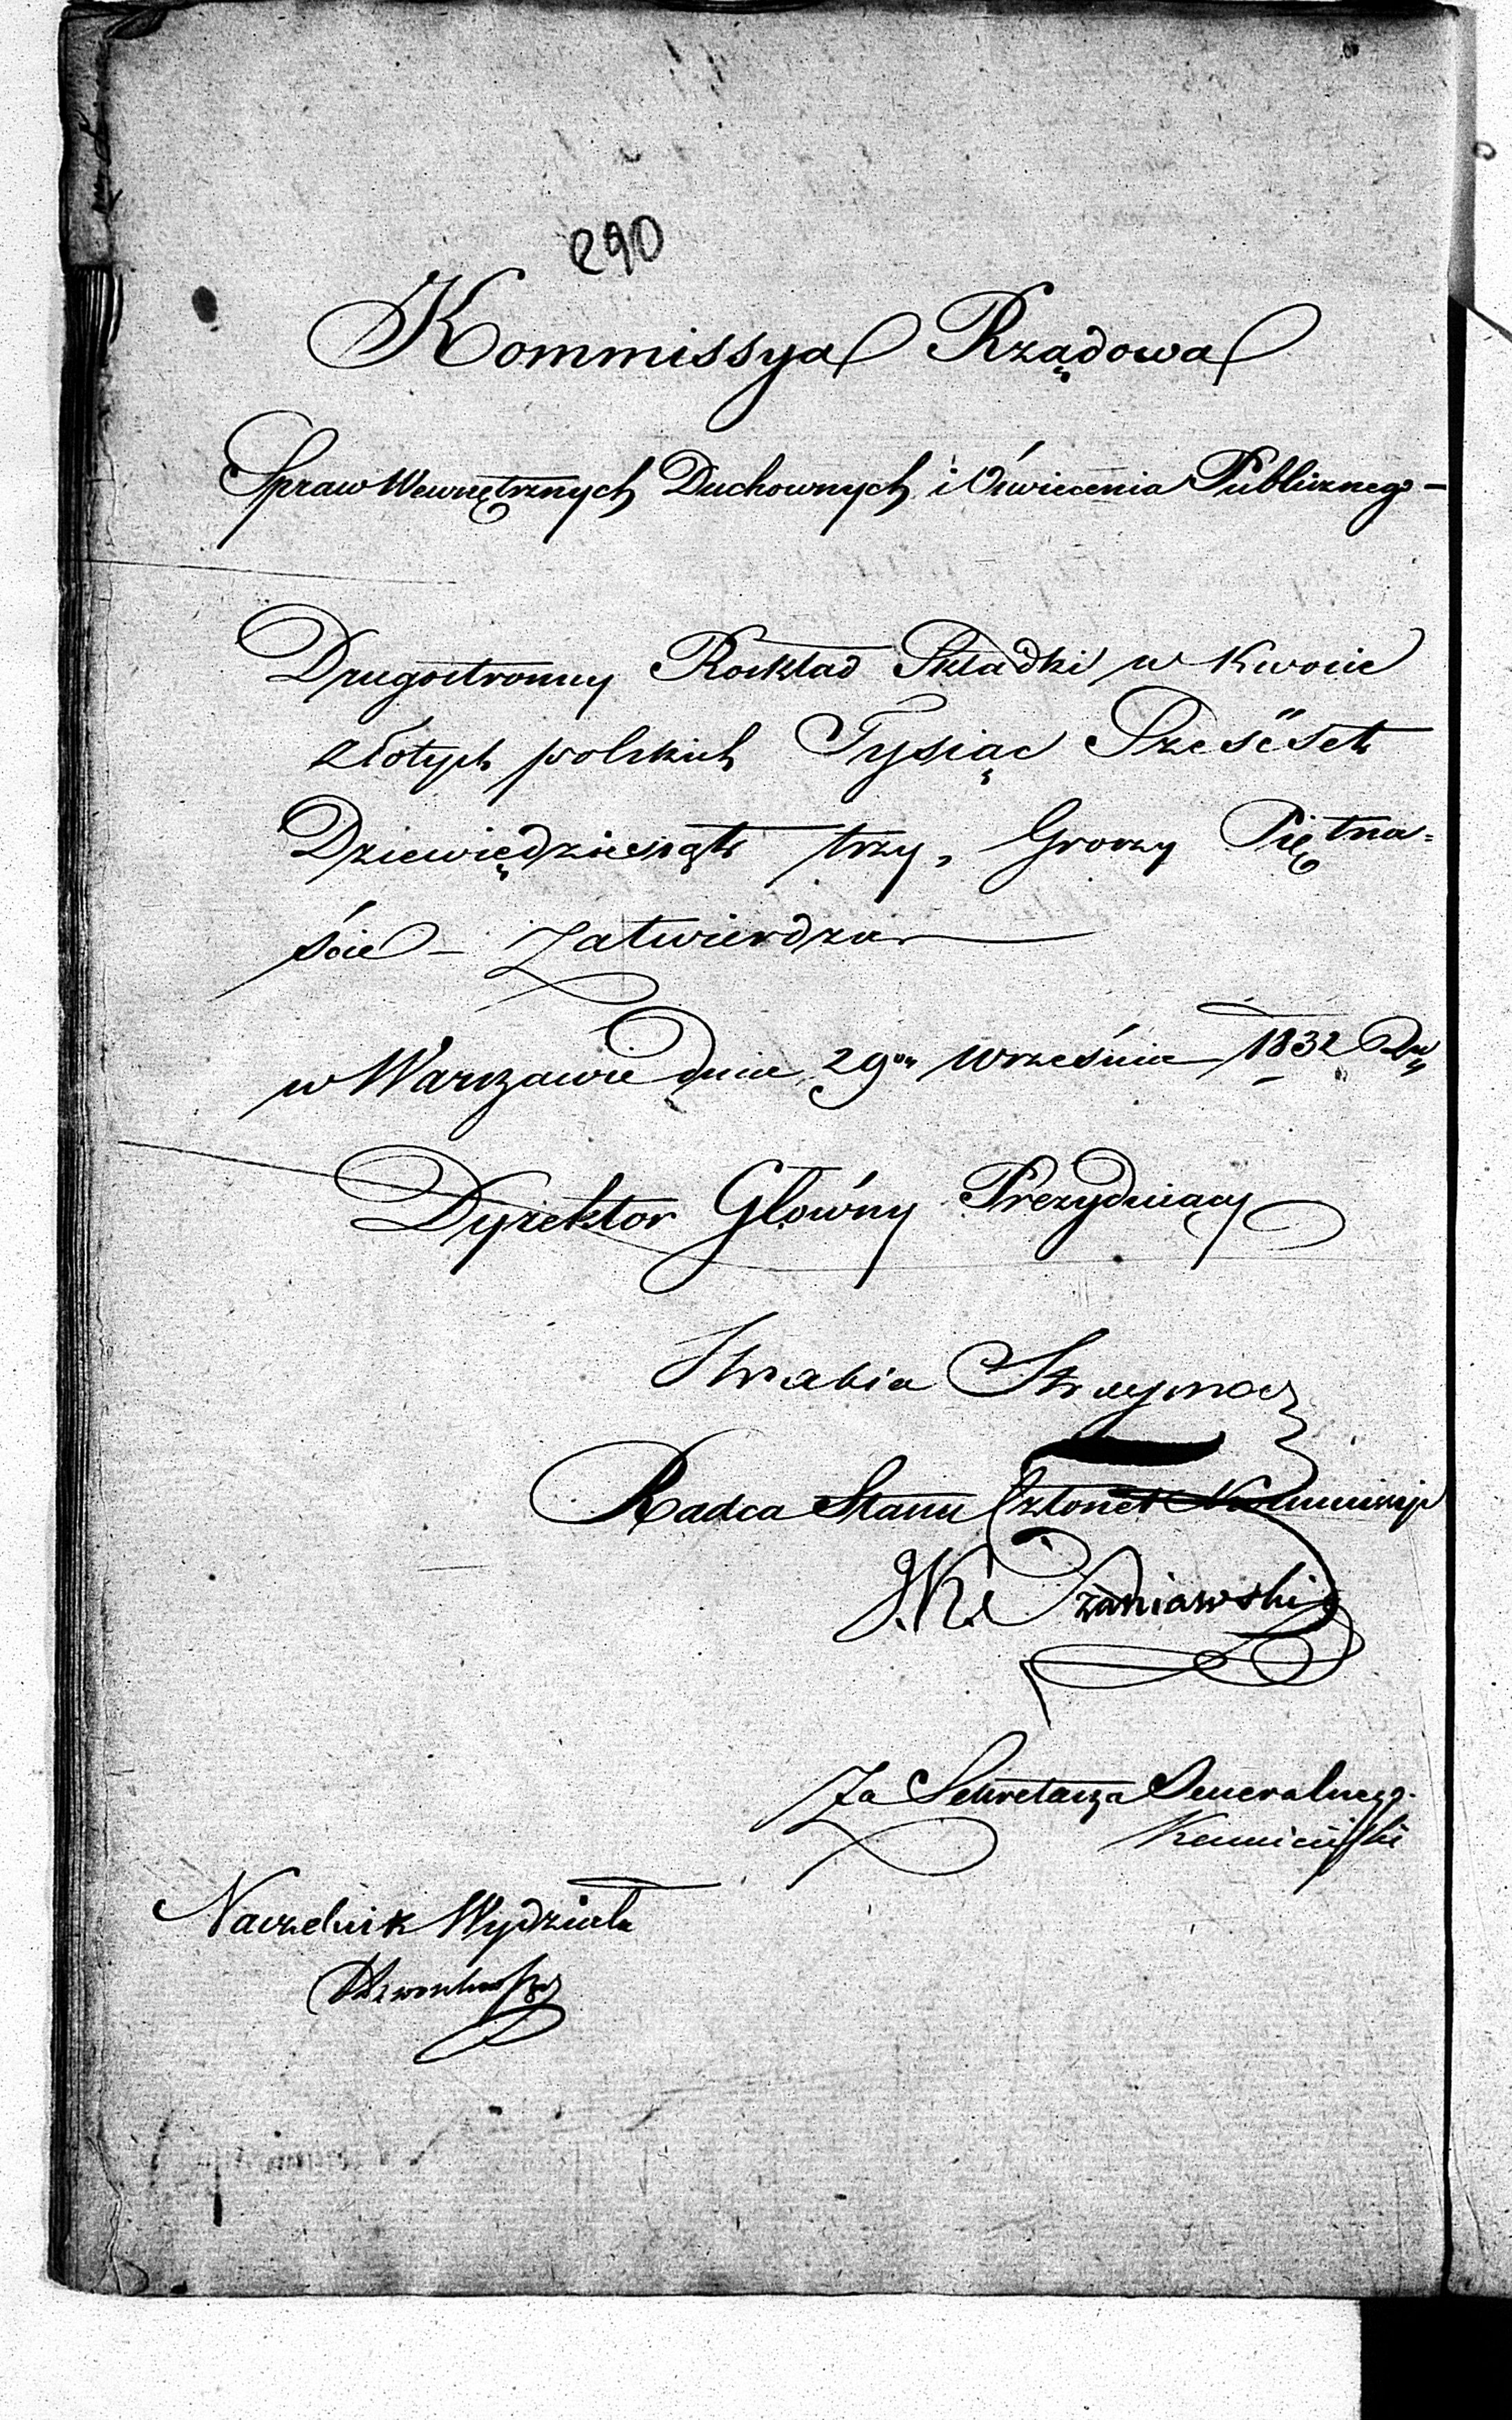 290
Kommissya Rządowa
Spraw Wewnętrznych Duchownych i Oświecenia Publicznego -
Drugostronny Rozkład Składki w kwocie
złotych polskich Tysiąc Sześćset
Dziewięćdziesiąt trzy, Groszy Piętna=
ście - Zatwierdza
w Warszawie dnia 29go Września 1832 Ru
Dyrektor Główny Prezydujący
Hrabia Strzymocz
Radca Stanu Członek Kommissyi
J. K. Szaniawski
Za Sekretarza Generalnego.
Naczelnik Wydziału